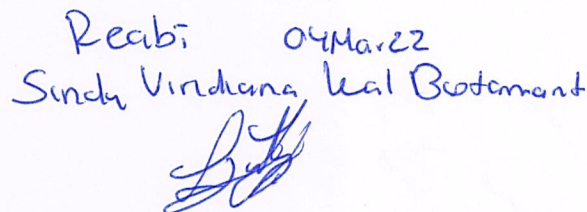 Recibi 04Mar22
Sindy Viridiana Leal Bustamant